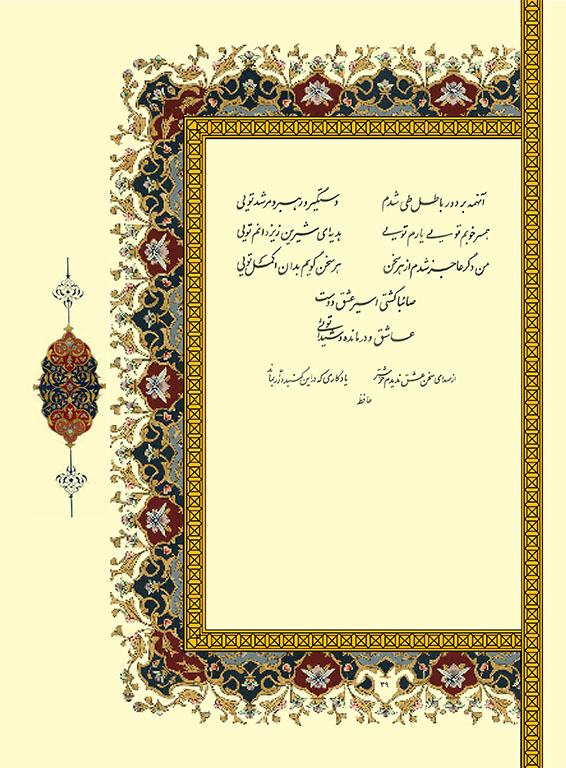 آنهمه بردند رباطل طی شدم دستگیر و رهبر و مرشد تویی
همسر خوبم تویی یارم تویی هدیه‌ای شیرین زیزدانم تویی
من دگر عاجز شدم از هر سخن هر سخن گویم بدان اکمل تویی
صائبا گشتی اسیر عشق دوست
عاشق و درمانده و شیدا تویی
از صدای سخن عشق ندیدم خوشتر یادگاری که در این گنبد دوّار بماند
حافظ
۳۹